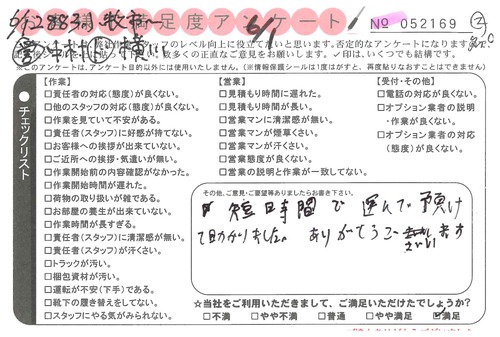 足度アンケート
No 052169 ②
フのレベル向上に役立てたいと思います。否定的なアンケートになります
数多くの正直なご意見をお願いします。✓印は、いくつでも結構です。
※このアンケートは、アンケート目的以外には使用いたしません。(※情報保護シールは1度はがすと、再度貼りなおすことはできません)
チェックリスト
【作業】
□責任者の対応(態度)が良くない。
□他のスタッフの対応(態度)が良くない。
□作業を見ていて不安がある。
□責任者(スタッフ)に好感が持てない。
□お客様への挨拶が出来ていない。
□ご近所への挨拶・気遣いが無い。
□作業開始前の内容確認がなかった。
□作業開始時間が遅れた。
□荷物の取り扱いが雑である。
□お部屋の養生が出来ていない。
□作業時間が長すぎる。
□責任者(スタッフ)に清潔感が無い。
□責任者(スタッフ)が汗くさい。
□トラックが汚い。
□梱包資材が汚い。
□運転が不安(下手)である。
□靴下の履き替えをしてない。
□スタッフにやる気がみられない。
【営業】
□見積もり時間に遅れた。
□見積もり時間が長い。
□営業マンに清潔感が無い。
□営業マンが煙草くさい。
□営業マンが汗くさい。
□営業態度が良くない。
□営業の説明と作業が一致してない。
【受付・その他】
□電話の対応が良くない。
□オプション業者の説明
・作業が良くない。
□オプション業者の対応
(態度)が良くない。
その他、ご意見・ご要望等ありましたらお書き下さい。
短時間で運んで預け
て助かりました。ありがとうございます
☆当社をご利用いただきまして、ご満足いただけたでしょうか?
□不満 □やや不満 □普通 □やや満足 ☑満足